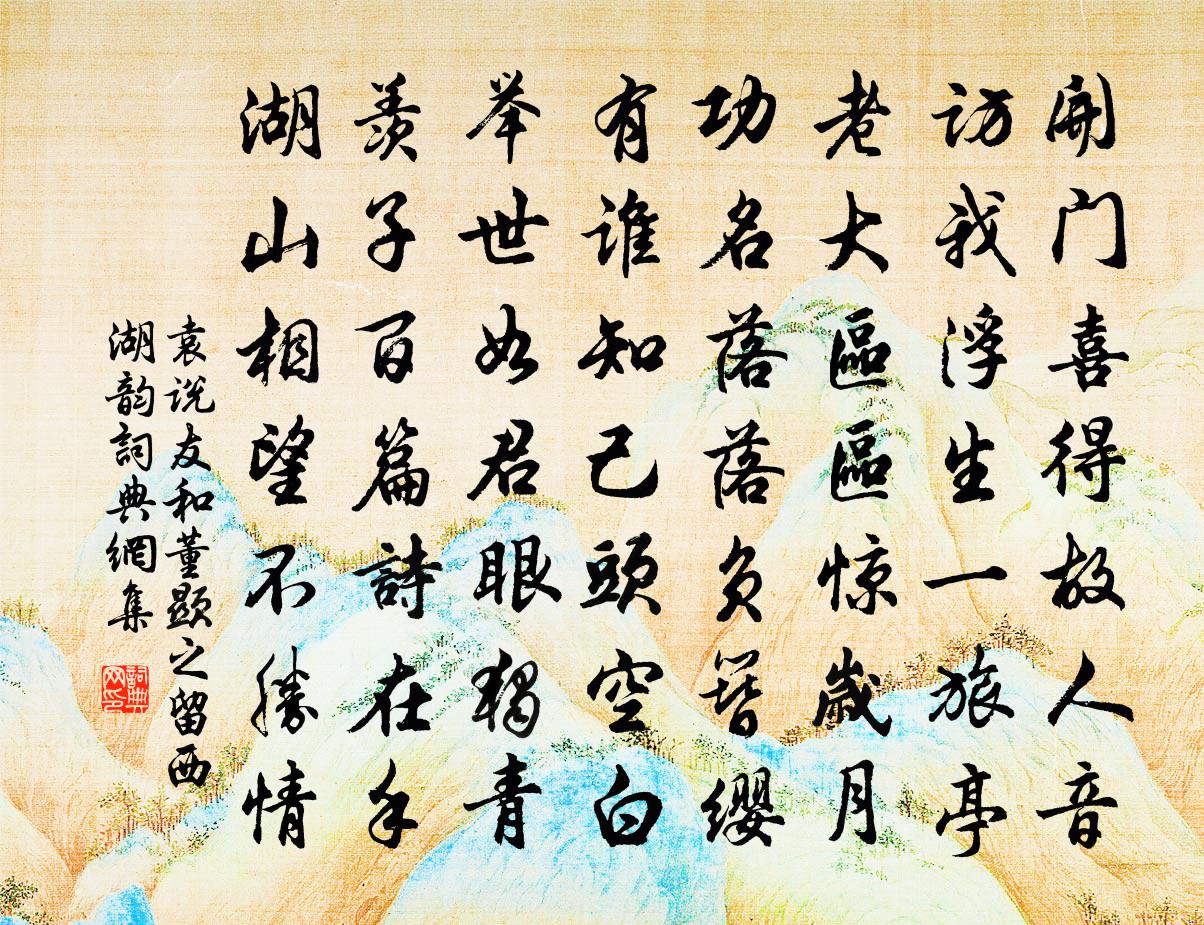 開门喜得故人音
访我浮生一旅亭
老大區區惊歲月
功名落落负簪缨
有谁知己頭空白
举世如君眼独青
羨子百篇詩在手
湖山相望不勝情
袁说友和董顯之留西
湖韵詞典網集
詞典网印